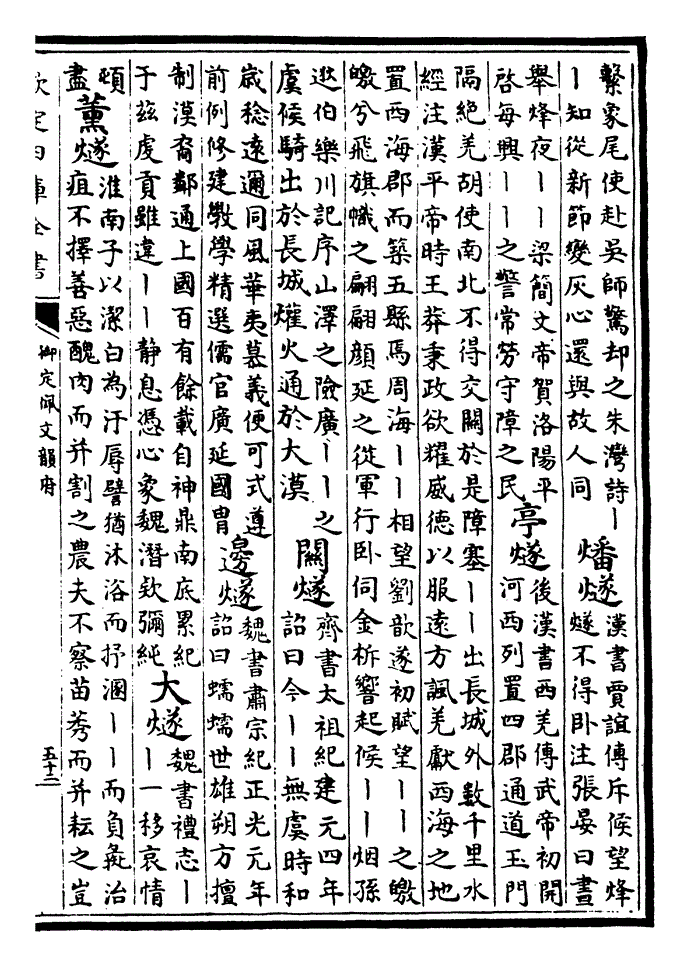 繫象尾使赴吳師驚却之朱灣詩丨
丨知從新節變灰心還與故人同
燔燧
漢書賈誼傳斥候望烽
燧不得卧注張晏曰晝
舉烽夜丨丨梁簡文帝賀洛陽平
啓每興丨丨之警常勞守障之民
亭燧
後漢書西羌傳武帝初開
河西列置四郡通道玉門
隔絕羌胡使南北不得交關於是障塞丨丨出長城外數千里水
經注漢平帝時王莽秉政欲耀威德以服遠方諷羌獻西海之地
置西海郡而築五縣焉周海丨丨相望劉歆遂初賦望丨丨之皦
皦兮飛旗幟之翩翩顔延之從軍行卧伺金柝響起候丨丨烟孫
逖伯樂川記序山澤之險廣丨丨之
虞候騎出於長城爟火通於大漠
關燧
齊書太祖紀建元四年
詔曰今丨丨無虞時和
歲稔遠邇同風華夷慕義便可式遵
前例修建斆學精選儒官廣延國胄
邊燧
魏書肅宗紀正光元年
詔曰蠕蠕世雄朔方擅
制漠裔鄰通上國百有餘載自神鼎南底累紀
于茲虔貢雖違丨丨靜息憑心象魏潛欵彌純
大燧
魏書禮志丨
丨一移哀情
頓
盡
薰燧
淮南子以潔白為汙辱譬猶沐浴而抒溷丨丨而負彘治
疽不擇善惡醜肉而并割之農夫不察苗莠而并耘之豈
欽定四庫全書
御定佩文韻府
五十三